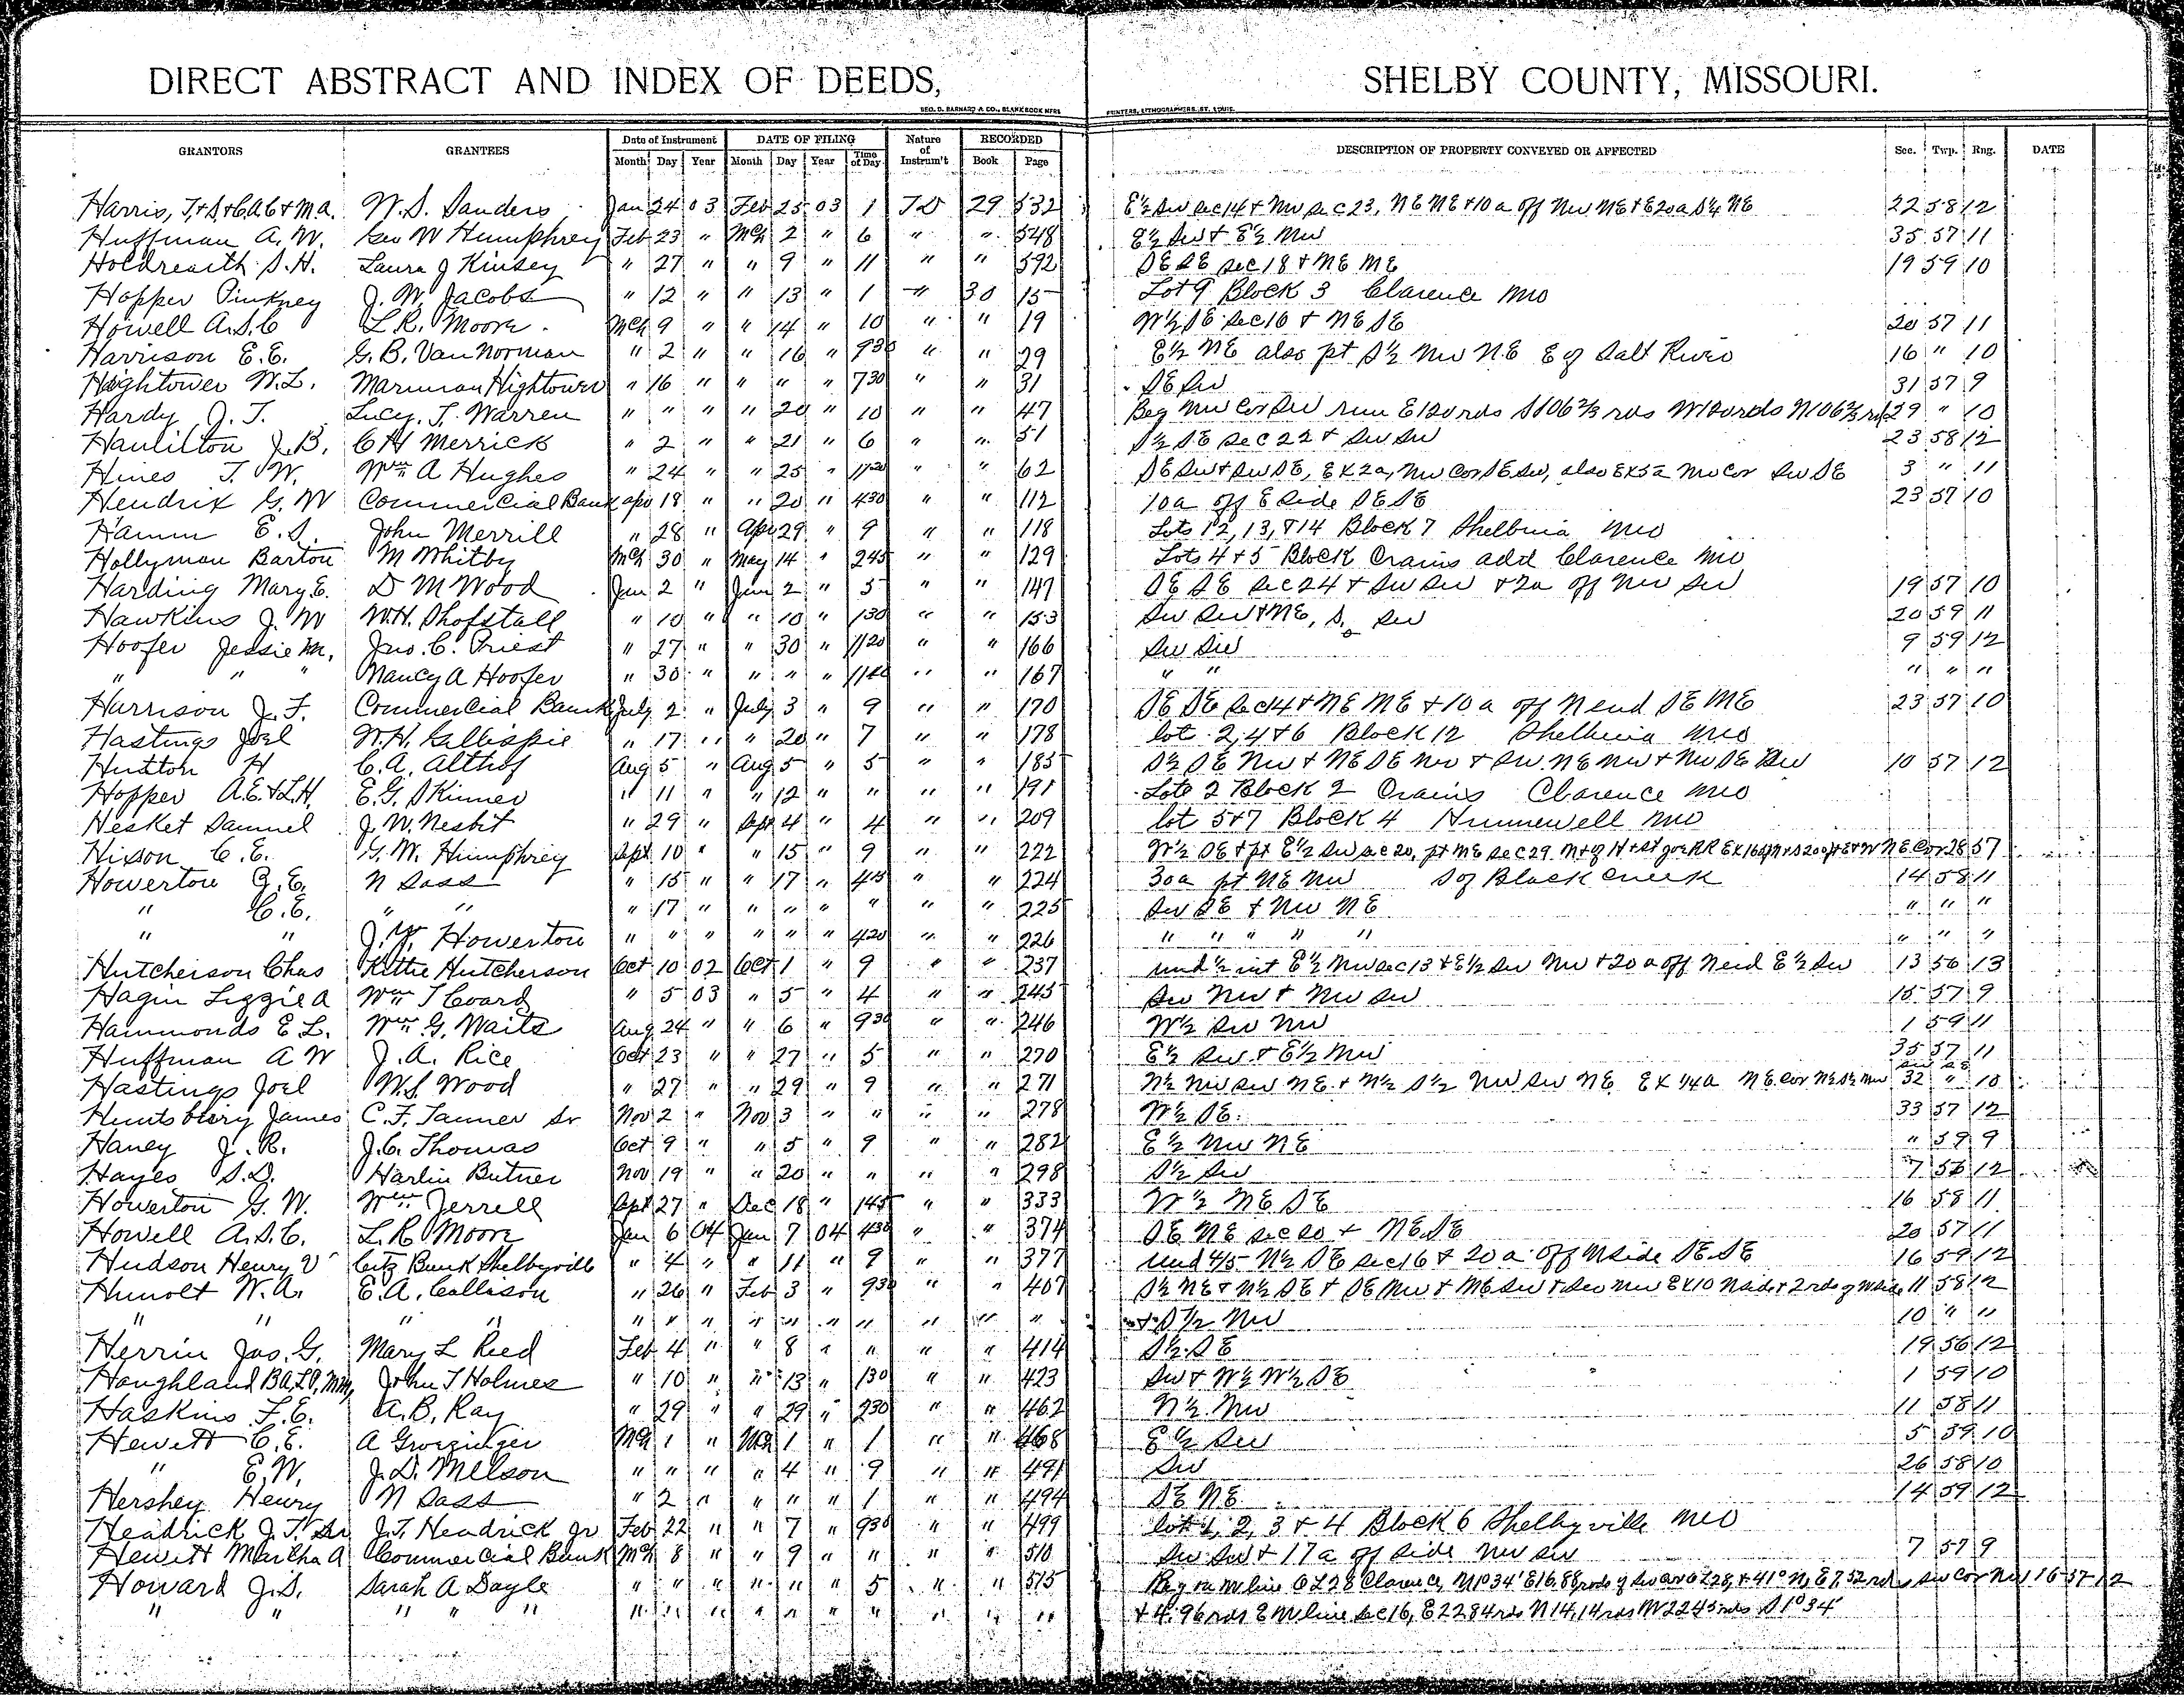 DIRECT ABSTRACT AND INDEX OF DEEDS, SHELBY COUNTY, MISSOURI.
GEO. D. BARNARD & CO., BLANK BOOK MFRS PRINTERS, LITHOGRAPHERS, ST. LOUIS.
GRANTORS GRANTEES Date of Instrument DATE OF FILING Nature of Instrum't RECORDED DESCRIPTION OF PROPERTY CONVEYED OR AFFECTED Sec. Twp. Rng. DATE
Month Day Year Month Day Year Time of Day Book Page
Harris, J.+S+C.A.C+M.A. W.S. Sanders Jan 24 03 Feb 25 03 1 TD 29 532 E½ SW sec 14 + NW sec 23, NE NE + 10a off NW NE + E20a S¼ NE 22 58 12
Huffman A.W. Geo W Humphrey Feb 23 " Mch 2 " 6 " " 548 E½ SW + E½ NW 35 57 11
Holdreaith S.H. Laura J Kinsey " 27 " " 9 " 11 " " 592 SE SE sec 18 + NE NE 19 59 10
Hopper Pinkney J.W. Jacobs " 12 " " 13 " 1 " 30 15 Lot 9 Block 3 Clarence Mo
Howell A.S.C L.R. Moore Mch 9 " " 14 " 10 " " 19 W½ SE sec 16 + NE SE 20 57 11
Harrison E.E. G.B. Van Norman " 2 " " 16 " 930 " " 29 E½ NE also pt S½ NW NE E of Salt River 16 " 10
Hightower W.L. Marman Hightower " 16 " " " " 730 " " 31 SE SW 31 57 9
Hardy J.T. Lucy T. Warren " " " " 20 " 10 " " 47 Beg NW Cor SW run E 120 rds S 106⅔ rds W 120 rds N 106⅔ rds 29 " 10
Hamilton J.B. C H Merrick " 2 " " 21 " 6 " " 51 S½ SE sec 22 + SW SW 23 58 12
Hines T.W. Wm A Hughes " 24 " " 25 " 1120 " " 62 SE SW + SW SE, EX 2a, NW Cor SE SW, also EX 5a NW Cor SW SE 3 " 11
Hendrix G.W Commercial Bank Apr 18 " " 20 " 430 " " 112 10a off E side SE SE 23 57 10
Hamm E.S. John Merrill " 28 " Apr 29 " 9 " " 118 Lots 12, 13, +14 Block 7 Shelbina Mo
Hollyman Barton M Whitby Mch 30 " May 14 " 245 " " 129 Lots 4+5 Block Crains add Clarence Mo
Harding Mary E. D M Wood Jun 2 " Jun 2 " 5 " " 147 SE SE sec 24 + SW SW + 2a off NW SW 19 57 10
Hawkins J.W W.H. Shofstall " 10 " " 10 " 130 " " 153 SW SW + NE, S. SW 20 59 11
Hoofer Jessie M. Jno. C. Priest " 27 " " 30 " 1120 " " 166 SW SW 9 59 12
" " " Nancy A Hoofer " 30 " " " " 1140 " " 167 " " " " "
Harrison J.F. Commercial Bank July 2 " July 3 " 9 " " 170 SE SE sec 14 + NE NE + 10a off N end SE NE 23 57 10
Hastings Joel W.H. Gallispie " 17 " " 20 " 7 " " 178 lot 2, 4+6 Block 12 Shelbina Mo
Hutton H C.A. Althof Aug 5 " Aug 5 " 5 " " 185 S½ SE NW + NE SE NW + SW NE NW + NW SE NW 10 57 12
Hopper A.E.+L.H. E.G. Skinner " 11 " " 12 " " " " 191 Lots 2 Block 2 Crains Clarence Mo
Hesket Samuel J.W. Nesbit " 29 " Sept 4 " 4 " " 209 lot 5+7 Block 4 Hunnewell Mo
Hixon C.E. G.W. Humphrey Sept 10 " " 15 " 9 " " 222 W½ SE + pt E½ SW sec 20, pt NE sec 29 N + of H + St Joe RR NE Cor 28 57
Howerton G.E. N Sass " 15 " " 17 " 415 " " 224 30a pt NE NW S of Black Creek 14 58 11
" C.E. " " " 17 " " " " " " " 225 SW SE + NW NE " " "
" " J.Y. Howerton " " " " " " 420 " " 226 " " " " " " " "
Hutcherson Chas Kittie Hutcherson Oct 10 02 Oct 1 " 9 " " 237 und ½ int E½ NW sec 13 + E½ SW NW + 20a off N end E½ SW 13 56 13
Hagin Lizzie A Wm T Coard " 5 03 " 5 " 4 " " 245 SW NW + NW SW 15 57 9
Hammonds E L. Wm G. Waits Aug 24 " " 6 " 930 " " 246 W½ SW NW 1 59 11
Huffman A W J.A. Rice Oct 23 " " 27 " 5 " " 270 E½ SW + E½ NW 35 57 11
Hastings Joel W.S. Wood " 27 " " 29 " 9 " " 271 N½ NW SW NE + N½ S½ NW SW NE EX ¼a NE Cor N½ S½ NW SW NE 32 " 10
Huntsberry James C.F. Tanner Sr Nov 2 " Nov 3 " " " " 278 W½ SE. 33 57 12
Haney J.R. J.C. Thomas Oct 9 " " 5 " 9 " " 282 E½ NW NE " 59 9
Hayes S.D. Harlin Butner Nov 19 " " 20 " " " " 298 S½ SW 7 56 12
Howerton G.W. Wm Jerrell Sept 27 " Dec 18 " 145 " " 333 W½ NE SE 16 58 11
Howell A.S.C. L.R Moore Jan 6 04 Jan 7 04 430 " " 374 SE NE sec 20 + NE SE 20 57 11
Hudson Henry V Citz Bank Shelbyville " 4 " " 11 " 9 " " 377 und 4/5 N½ SE sec 16 + 20a off N side SE SE 16 59 12
Hunolt W.A. E.A. Collison " 26 " Feb 3 " 930 " " 407 S½ NE + N½ SE + SE NW + NE SW + SW NW EX 10 N side + 2 rds of W side 11 58 12
" " " " " " " " " " " " " " + S½ NW 10 " "
Herrin Jas. G. Mary L Reed Feb 4 " " 8 " " " " 414 S½ SE 19 56 12
Houghland B.A, L.P, MM, John T Holmes " 10 " " 13 " 130 " " 423 SW + W½ W½ SE 1 59 10
Haskins F.E. A.B. Ray " 29 " " 29 " 230 " " 462 N½ NW 11 58 11
Hewitt C.E. A Growzinger Mch 1 " Mch 1 " 1 " " 468 E½ SW 5 59 10
" E.W. J.D. Melson " " " " 4 " 9 " " 491 SW 26 58 10
Hershey Henry N Sass " 2 " " " " 1 " " 494 SE NE 14 59 12
Headrick J.T. Sr J.T. Headrick Jr Feb 22 " " 7 " 930 " " 499 lot 1, 2, 3 + 4 Block 6 Shelbyville Mo
Hewitt Martha A Commercial Bank Mch 8 " " 9 " " " " 510 SW SW + 17a off side NW SW 7 57 9
Howard J.S. Sarah A Dayle " " " " " " 5 " " 515 Beg on N line O L 28 Clarence, N 1°34' E 16.88 rods of SW Cor O L 28, + 41° N, E 7.52 rds SW Cor NW 16 57 12
" " " " " " " " " " " " " " " + 4.96 rds E W line sec 16, E 22.84 rds N 14.14 rds W 22.45 rds S 1°34'